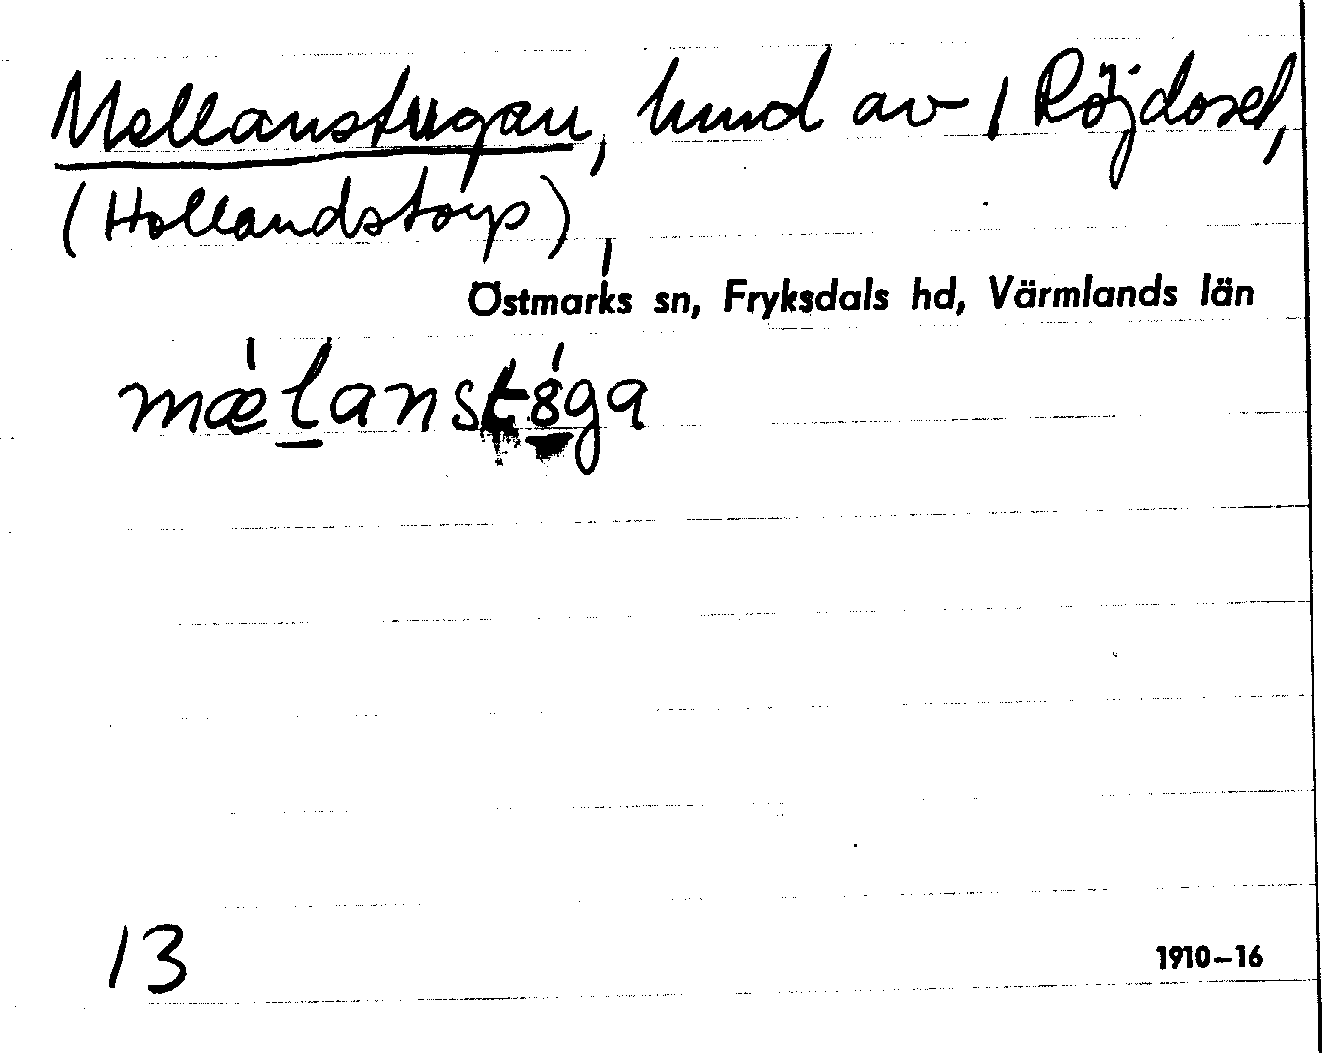 Mellanstugan, hmd av 1 Röjdosel,
(Hollandstorp),
Östmarks sn, Fryksdals hd, Värmlands län
mǽlanstȣ́ga
13
1910–16